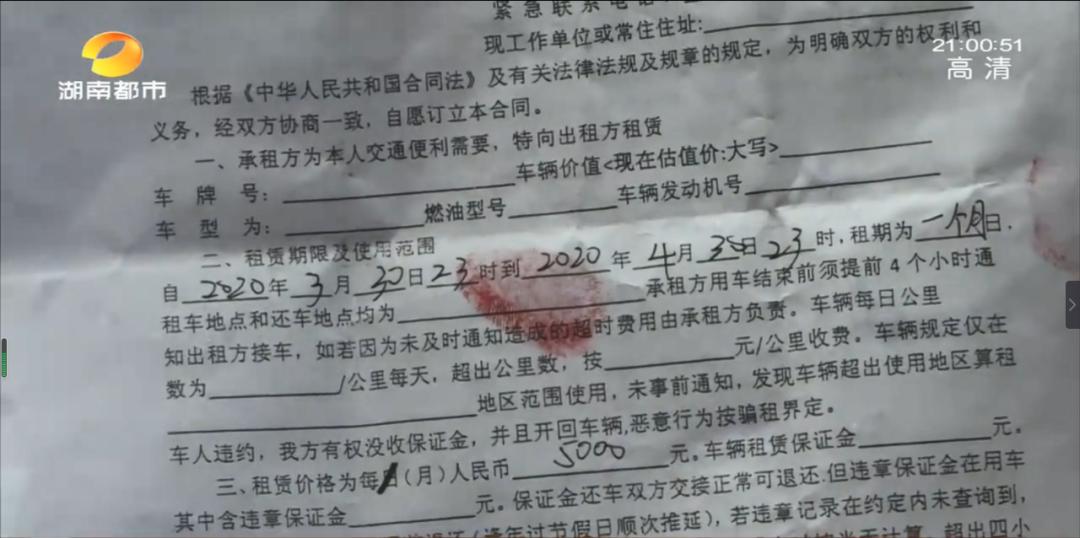 湖南都市
21:00:51
高清
紧急联系电话:
现工作单位或常住住址:
根据《中华人民共和国合同法》及有关法律法规及规章的规定，为明确双方的权利和
义务，经双方协商一致，自愿订立本合同。
一、承租方为本人交通便利需要，特向出租方租赁
车 牌 号: 车辆价值<现在估值价:大写>
车 型 为: 燃油型号 车辆发动机号
二、租赁期限及使用范围
自2020年3月30日23时到2020年4月30日23时，租期为一个月日，
租车地点和还车地点均为 承租方用车结束前须提前4个小时通
知出租方接车，如若因为未及时通知造成的超时费用由承租方负责。车辆每日公里
数为 /公里每天，超出公里数，按 元/公里收费。车辆规定仅在
地区范围使用，未事前通知，发现车辆超出使用地区算租
车人违约，我方有权没收保证金，并且开回车辆,恶意行为按骗租界定。
三、租赁价格为每 (月)人民币5000元。车辆租赁保证金 元。
其中含违章保证金 元。保证金还车双方交接正常可退还.但违章保证金在用车
(逢年过节假日顺次推延)，若违章记录在约定内未查询到，
超出四小